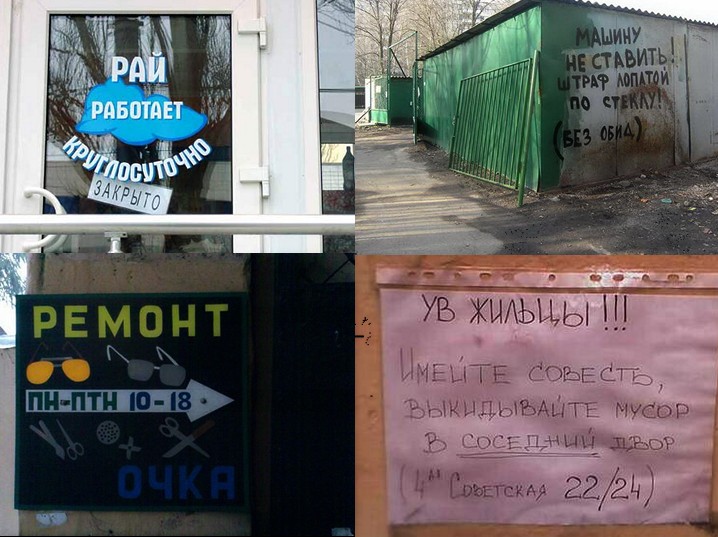 РАЙ
РАБОТАЕТ
КРУГЛОСУТОЧНО
ЗАКРЫТО
МАШИНУ
НЕ СТАВИТЬ
ШТРАФ ЛОПАТОЙ
ПО СТЕКЛУ!
(БЕЗ ОБИД)
РЕМОНТ
ПН-ПТН 10-18
ОЧКА
УВ ЖИЛЬЦЫ!!!
ИМЕЙТЕ СОВЕСТЬ,
ВЫКИДЫВАЙТЕ МУСОР
В СОСЕДНИЙ ДВОР
(4АЯ СОВЕТСКАЯ 22/24)